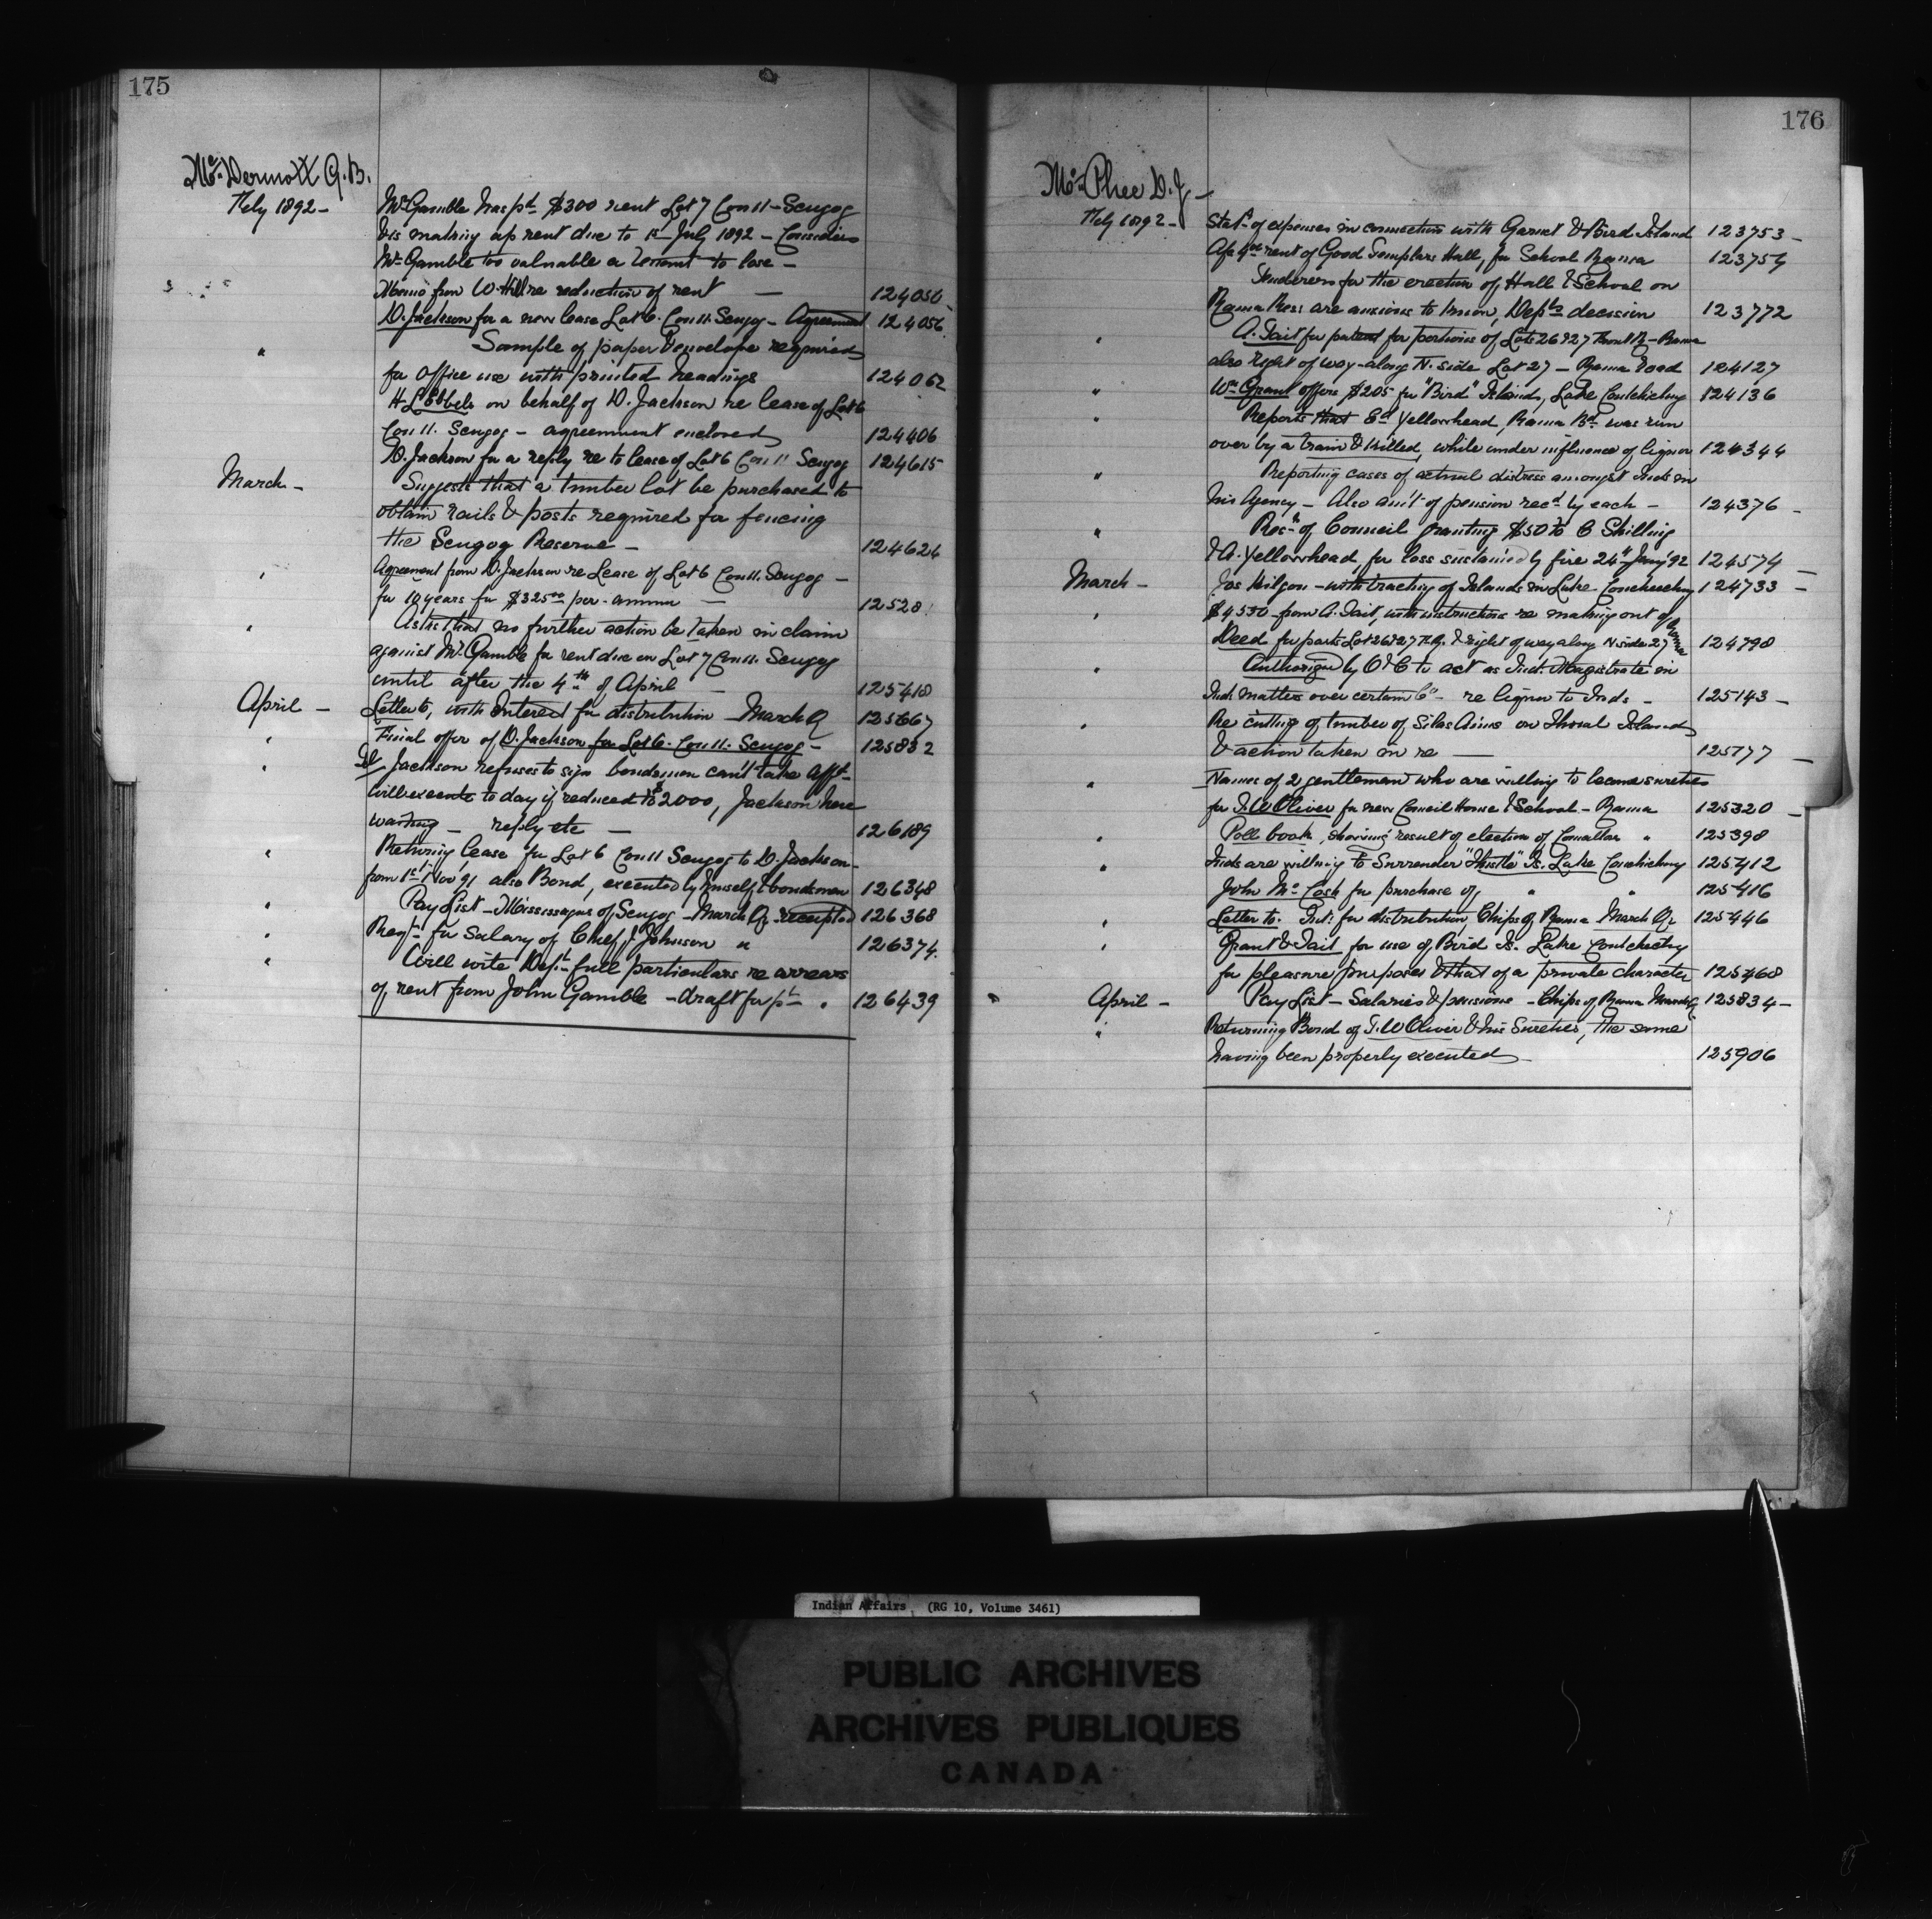 175
McDermott G. B.
Feby 1892 -
Mr Gamble has pd $300 rent Lot 7 Con 11 - Scugog
& is making up rent due to 1st July 1892 - Considers
Mr Gamble too valuable a tenant to lose -
Memo from W. Hill re reduction of rent - 124056
D. Jackson for a new lease Lot 6. Con 11. Scugog - Agreement 124056
" Sample of paper & envelope required
for office use with printed headings 124062
H L Ebbels on behalf of D. Jackson re lease of Lot 6
Con 11. Scugog - agreement enclosed 124406
D. Jackson for a reply re to lease of Lot 6 Con 11 Scugog 124615
March - Suggests that a timber lot be purchased to
obtain rails & posts required for fencing
the Scugog Reserve - 124624
" Agreement from D. Jackson re Lease of Lot 6 Con 11. Scugog -
for 10 years for $325.00 per annum - 12528
" Asks that no further action be taken in claim
against Mr Gamble for rent due on Lot 7 Con 11. Scugog
until after the 4th of April - 125418
April - Letter to, with Interest for distribution March Q 125667
" Final offer of D. Jackson for Lot 6. Con 11. Scugog - 125832
" Jackson refuses to sign bondsmen can't take afft -
will execute to day if reduced to $2000, Jackson here
waiting - reply etc - 126189
" Returning lease for Lot 6 Con 11 Scugog to D. Jackson -
from 1st Nov 91 also Bond, executed by himself & bondsmen 126348
" Pay List - Mississaguas of Scugog - March Qr receipted 126368
" Reqn for salary of Chief, J Johnson " 126374
" Will write Dept full particulars re arrears
of rent from John Gamble - draft for pt " 126439
176
McPhee D. J -
Feby 1892 - Statt of expenses in connection with Garnet & Bird Island 123753 -
rent of Good Templars Hall, for School Rama 123754
Tenderers for the erection of Hall & School on
Rama Res: are anxious to know, Depts decision 123772
" A. Tait for patent for portions of Lots 26 & 27 Front R - Rama
also right of way along N. side Lot 27 - Rama Road 124127
" Wm Grant offers $205 for "Bird" Islands, Lake Couchiching 124136
" Reports that Ed Yellowhead, Rama Bd was run
over by a train & killed, while under influence of liquor 124344
" Reporting cases of actual distress amongst Inds in
his Agency - Also am't of pension recd by each - 124376 -
" Resn of Council granting $50 to C Shilling
& A. Yellowhead, for loss sustained by fire 24th Jany '92 124574 -
March - Jas Kilgon - with tracting of Islands in Lake Couchiching 124733 -
" $4550 from A. Tait, with instructions re making out of
Deed for parts Lot 26 & 27 F.R. & right of way along N side 27 Rama 124798
" Authorized by O & C to act as Ind. Magistrate in
Ind. matters over certain Cos - re liquor to Inds - 125143 -
" Re cutting of timber of Silas Aims on Thorah Island
& action taken in re - 125177 -
" Names of 2 gentlemen who are willing to become sureties
for T. W Oliver for new Council House & School - Rama 125320 -
" Poll book, showing result of election of Councillor " 125398
" Inds are willing to Surrender "Thistle" Is. Lake Couchiching 125412
John McCosh for purchase of " " 125416
" Letter to. Int. for distribution, Chips of Rama March Qr 125446
" Grant & Tait for use of Bird Is. Lake Couchiching
for pleasure purposes & that of a private character 125468
April - Pay List - Salaries & pensions - Chips of Rama March Q 125834 -
" Returning Bond of T. W Oliver & his Sureties, the same
having been properly executed - 125906
Indian Affairs (RG 10, Volume 3461)
PUBLIC ARCHIVES
ARCHIVES PUBLIQUES
CANADA